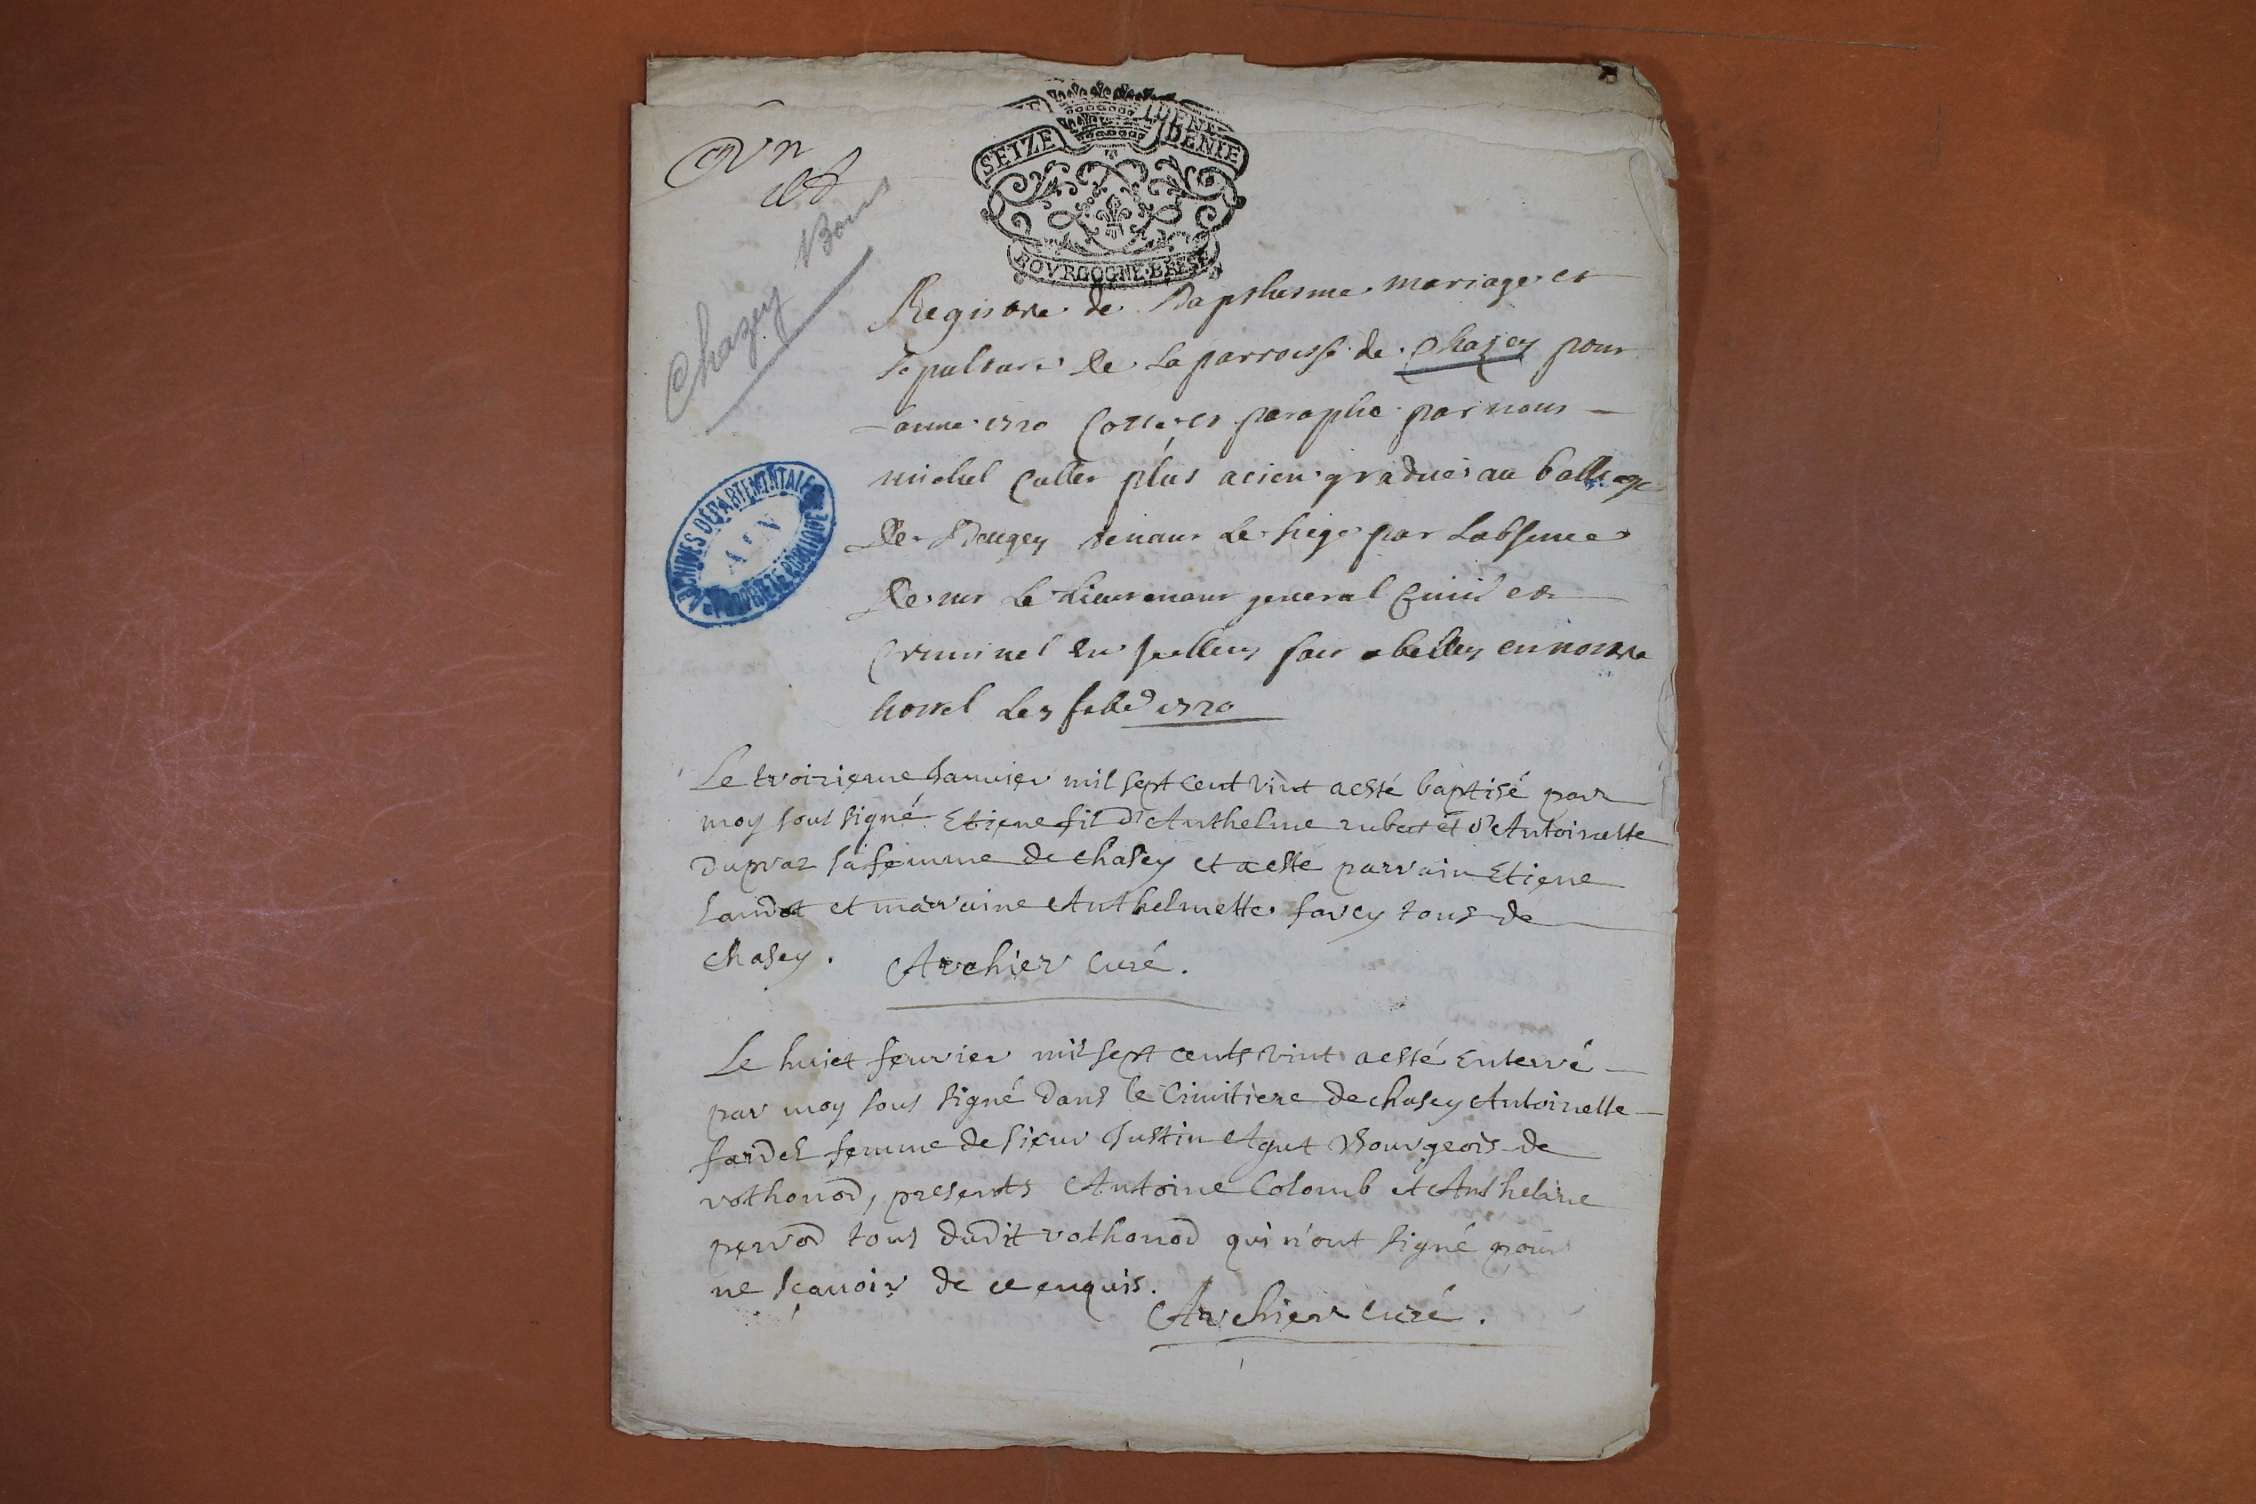 Vn
SEIZE DENIE
BOVRGOGNE BRESSE
Chazey Bons
ARCHIVES DÉPARTEMENTALES
AIN
PROPRIÉTÉ PUBLIQUE
Registre de Bapthesme mariage et
sepulture de la parroisse de Chazey pour
lanne 1720 Cotte et paraphe par nous
michel Cullet plus acien gradue au balliage
de Beugey tenant le siege par labsence
de mr le Lieutenant general Ciuil et
Criminel fait a belley en nostre
hostel le 7 1720
Le troizieme Januier mil sept cent vint a esté baptisé par
moy sous signé Etiene fil d'Anthelme rubat et d'Antoinette
Dupraz sa femme de chasey et a esté parrain Etiene
Landot et marraine Anthelmette favey tous de
chasey. Archier curé.
Le huict feurier mil sept cents vint a esté enterré
par moy sous signé dans le Cimitiere de chasey Antoinette
fardel femme de sieur Justin Agut Bourgeois de
vothonod, presents Antoine Colomb et Anthelme
perrod tous dudit vothonod qui n'ont signé pour
ne sçauoir de ce enquis.
Archier curé.